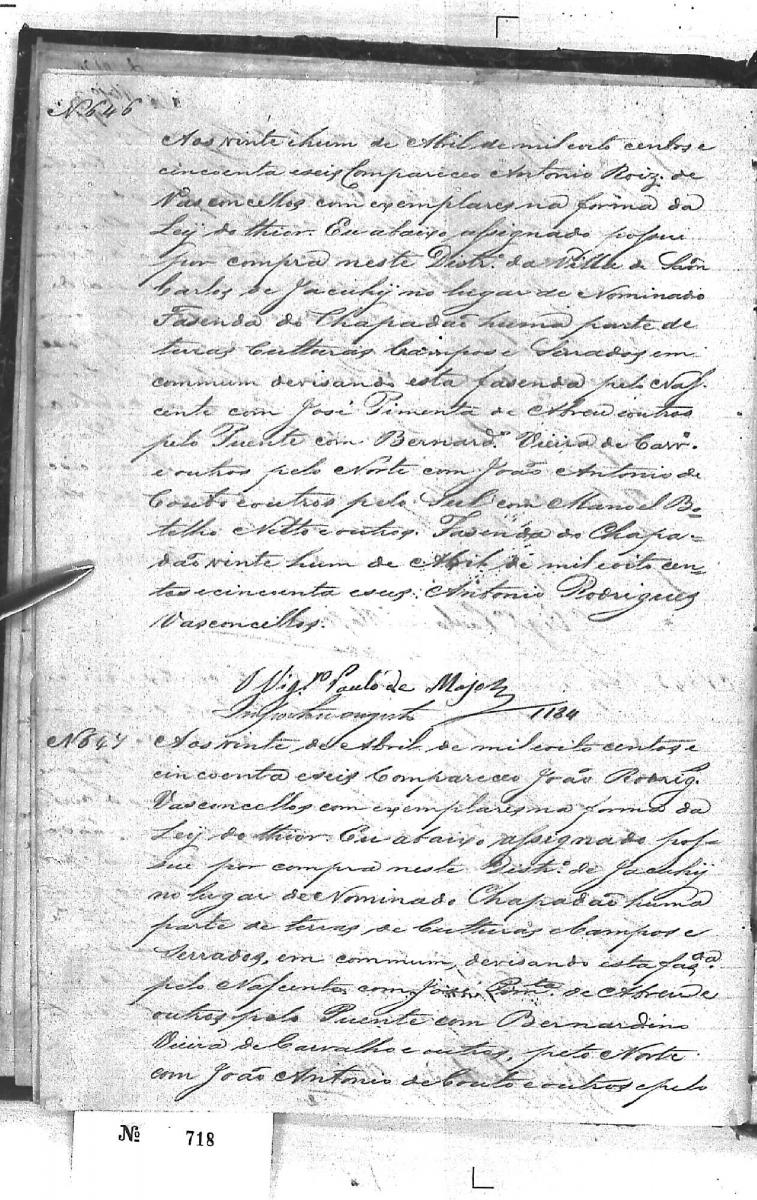 Nº 646
Aos vinte ehum de Abril de mil oito centos e
cincoenta eseis Compareceo Antonio Roiz. de
Vasconcellos com exemplares na forma da
Ley do thior. Eu abaixo assignado possui
por compra neste Distr.º da Villa de Sam
Carlos de Jacuhy no lugar de Nominado
Fasenda do Chapadaõ huma parte de
terras Culturas Campos e Serrados em
commum devisando esta fasenda pelo Nas-
cente com José Pimenta de Abreu e outros
pelo Puente com Bernard.º Vieira de Carv.º
e outros pelo Norte com João Antonio de
Couto e outros pelo Sul com Manoel Bo-
telho Netto e outros. Fasenda do Chapa-
daõ vinte hum de Abril de mil oito cen-
tos e cincoenta eseis. Antonio Rodrigues
Vasconcellos.
O Vig.rº Paulo de
1184
Nº 647
Aos vinte de Abril de mil oito centos e
cincoenta eseis Compareceo João Rodrig.s
Vasconcellos com exemplares na forma da
Ley do thior. Eu abaixo assignado pos-
sue por compra neste Distr.º de Jacuhy
no lugar de Nominado Chapadaõ huma
parte de terras de Culturas e Campos e
Serrados, em commum, devisando esta fas.da
pelo Nascente com José Pim.ta de Abreu e
outros pelo Puente com Bernardino
Vieira de Carvalho e outros, pelo Norte
com João Antonio de Couto e outros epelo
Nº 718